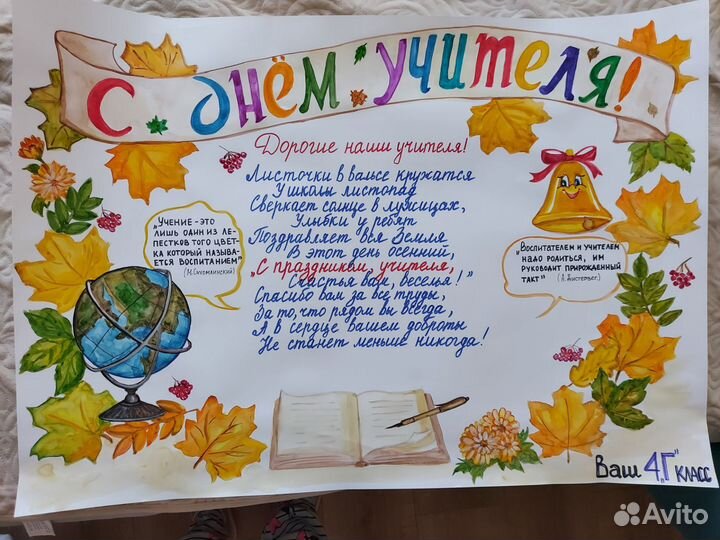 С днём учителя!
Дорогие наши учителя!
Листочки в вальсе кружатся
У школы листопад
Сверкает солнце в лужицах,
Улыбки у ребят
Поздравляет вся Земля
В этот день осенний,
„С праздником, учителя,
Счастья вам, веселья!"
Спасибо вам за все труды,
За то, что рядом вы всегда,
А в сердце вашем доброты
Не станет меньше никогда!
„Учение - это
лишь один из ле-
пестков того цвет-
ка который называ-
ется воспитанием"
(М. Сухомлинский)
„Воспитателем и учителем
надо родиться, им
руководит прирожденный
такт"
(А. Дистервег.)
Ваш 4„Г" класс
Avito